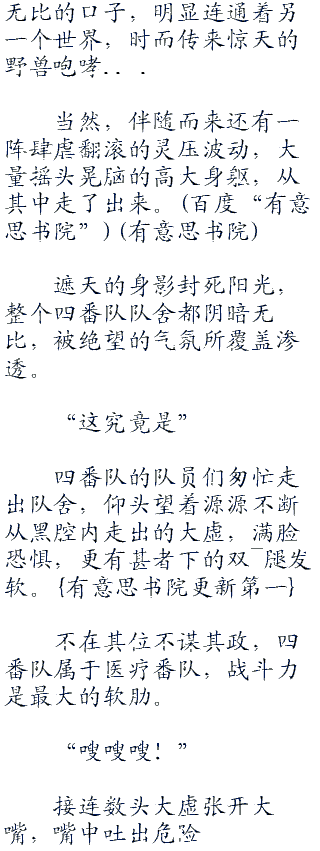 无比的口子，明显连通着另
一个世界，时而传来惊天的
野兽咆哮．．．
当然，伴随而来还有一
阵肆虐翻滚的灵压波动，大
量摇头晃脑的高大身躯，从
其中走了出来。(百度“有意
思书院”)(有意思书院)
遮天的身影封死阳光，
整个四番队队舍都阴暗无
比，被绝望的气氛所覆盖渗
透。
“这究竟是”
四番队的队员们匆忙走
出队舍，仰头望着源源不断
从黑腔内走出的大虚，满脸
恐惧，更有甚者下的双¯腿发
软。{有意思书院更新第一}
不在其位不谋其政，四
番队属于医疗番队，战斗力
是最大的软肋。
“嗖嗖嗖！”
接连数头大虚张开大
嘴，嘴中吐出危险